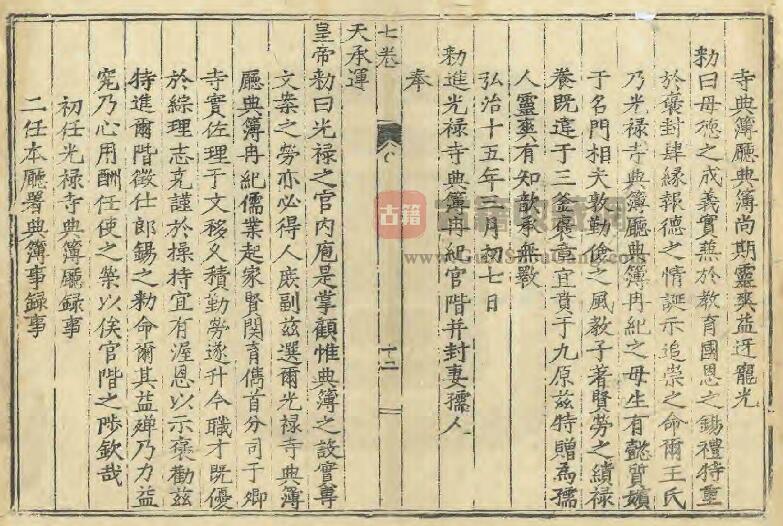 寺典簿廳典簿尚期靈爽益迓寵光
勑曰母德之成義實兼於教育國恩之錫禮特重
於褒封肆緣報德之情誕示追崇之命爾王氏
乃光禄寺典簿廳典簿冉紀之母生有懿質嬪
于名門相夫敦勤儉之風教子著賢勞之績禄
養既違于三釜褒章宜賁于九原兹特贈為孺
人靈爽有知歆承無斁
弘治十五年二月初七日
勑進光禄寺典簿冉紀官階并封妻孺人
奉
七卷
十二
天承運
皇帝勑曰光禄之官内庖是掌顧惟典簿之設實專
文案之勞亦必得人庶副兹選爾光禄寺典簿
廳典簿冉紀儒業起家賢関育儁首分司于卿
寺實佐理于文移乂積勤勞遂升今職才既優
於綜理志克謹於操持宜有渥恩以示褒勸兹
特進爾階徴仕郎錫之勑命爾其益殫乃力益
究乃心用酬任使之榮以俟官階之陟欽哉
初任光禄寺典簿廳録事
二任本廳署典簿事録事
古籍
www.GujiShuGang.com